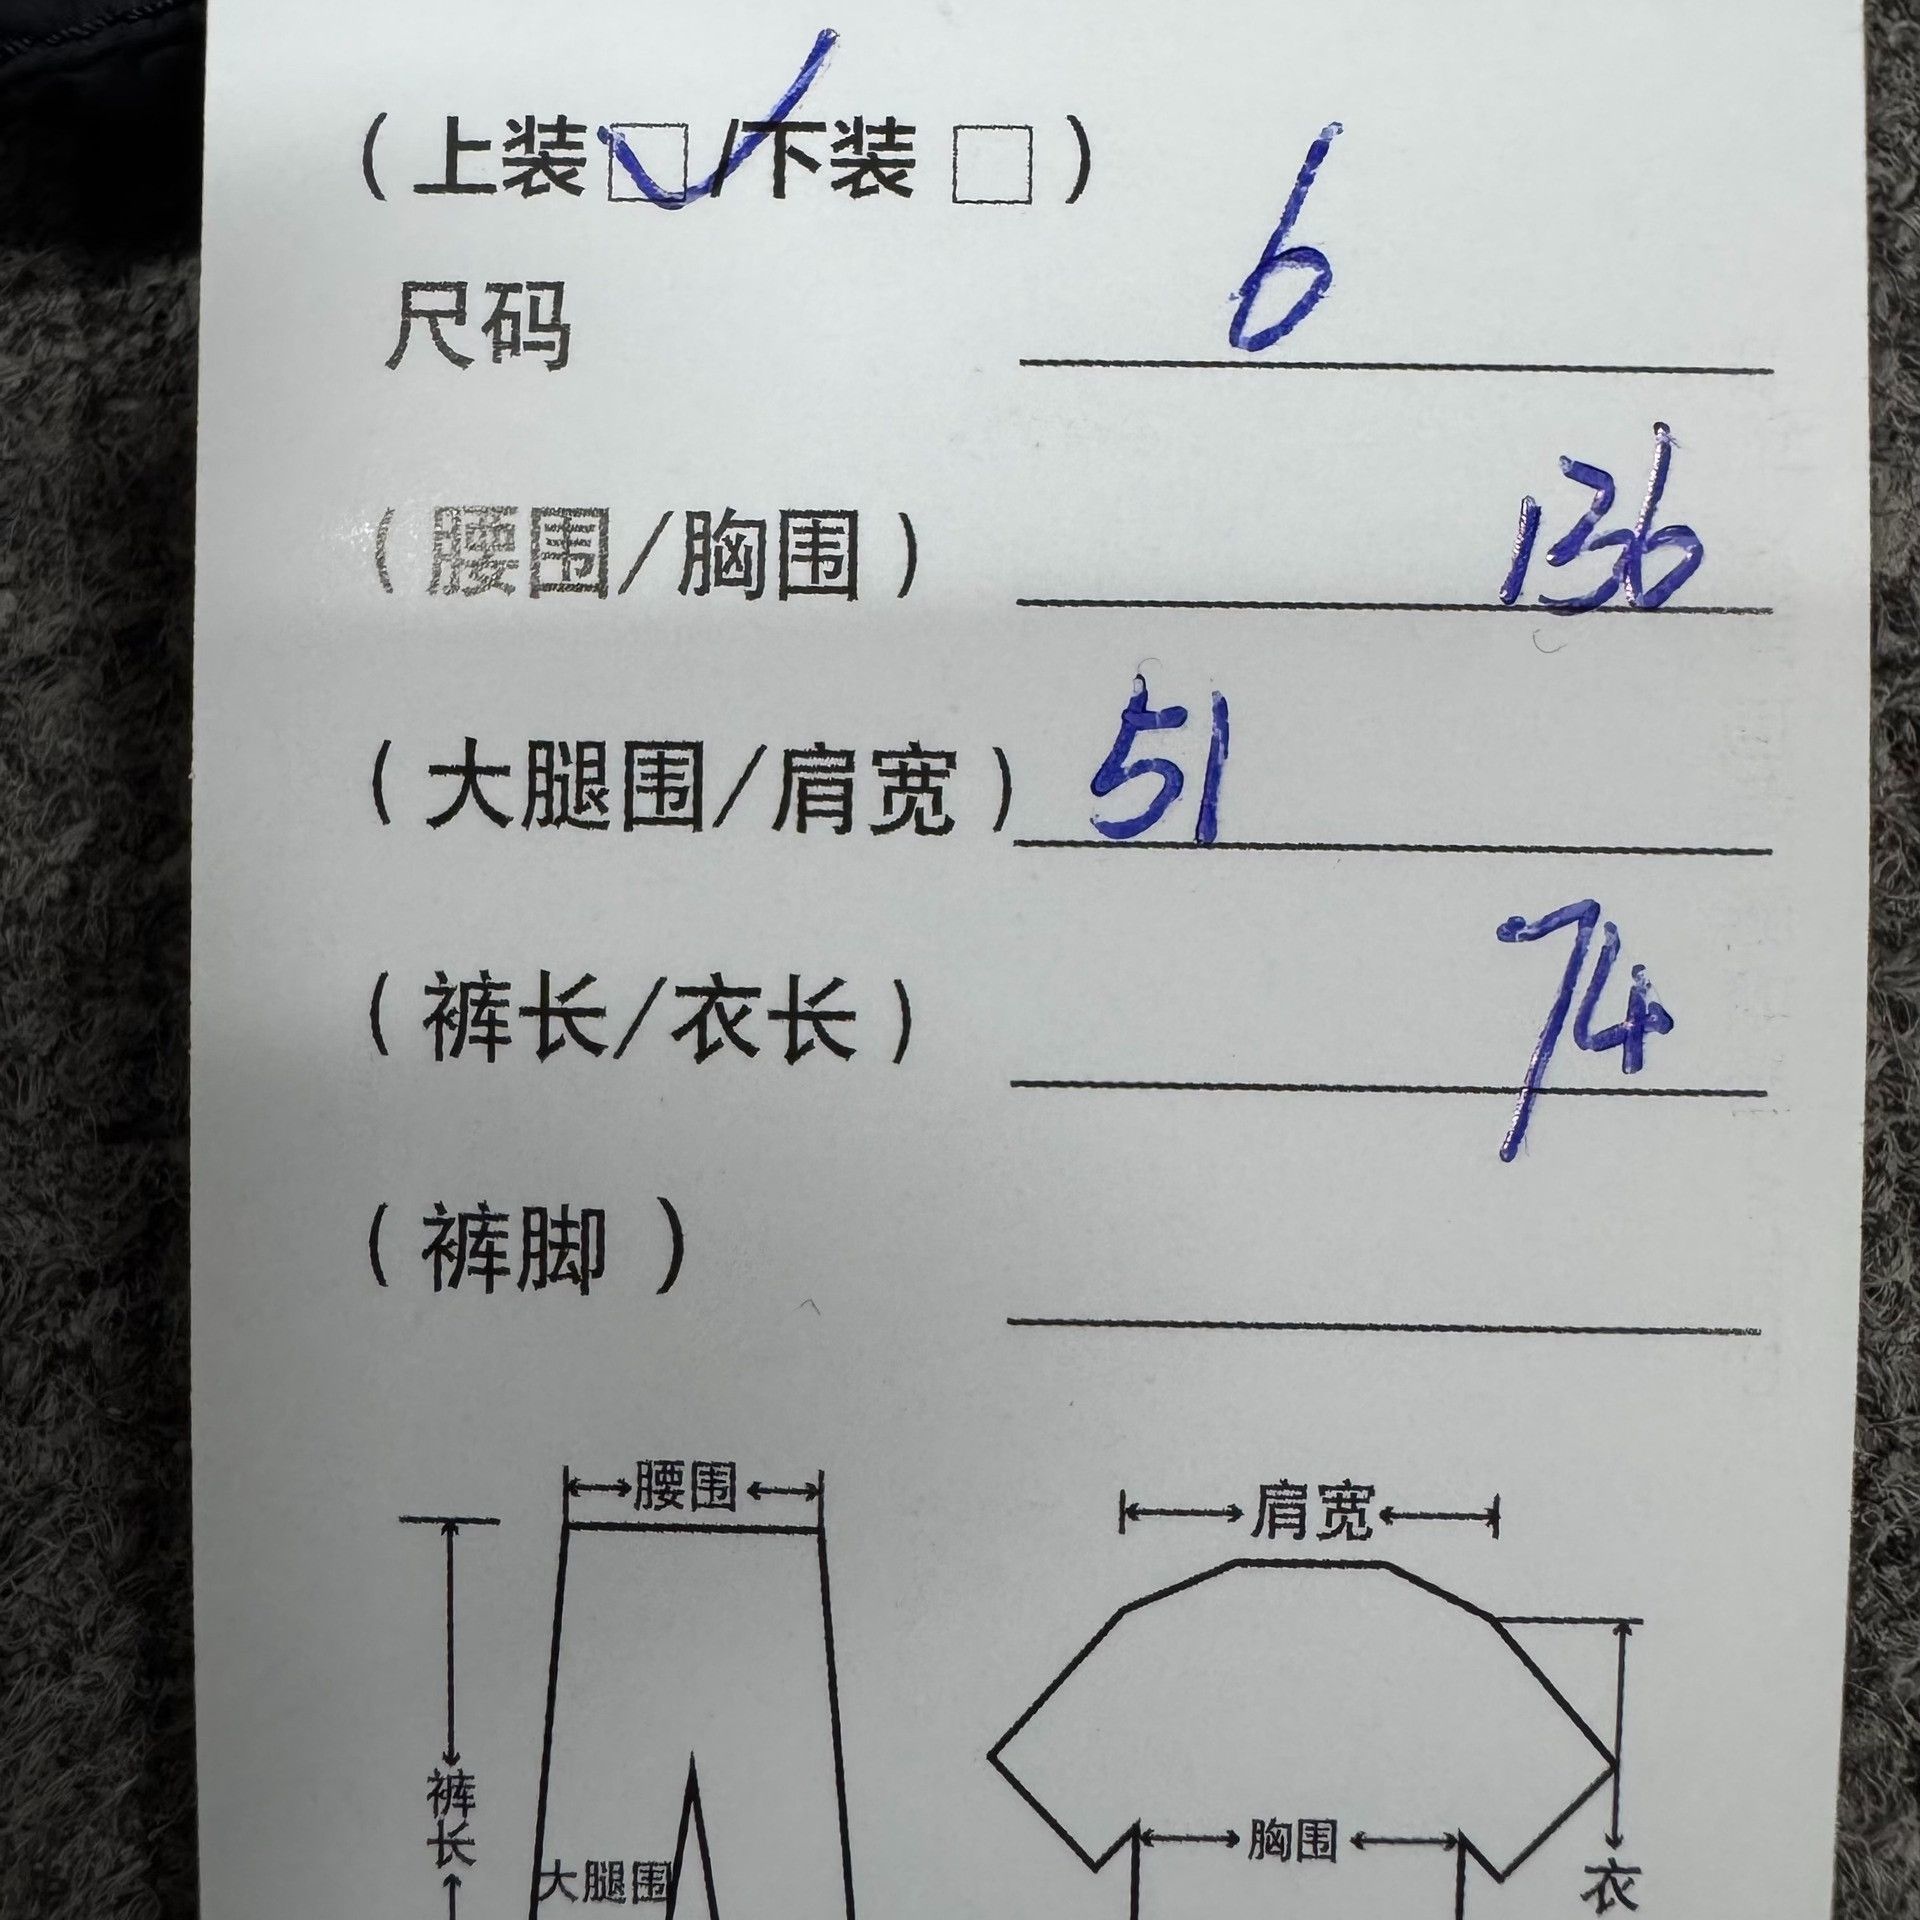 (上装□✓/下装□)
尺码 6
(腰围/胸围) 136
(大腿围/肩宽) 51
(裤长/衣长) 74
(裤脚 )
腰围
肩宽
裤长
大腿围
胸围
衣